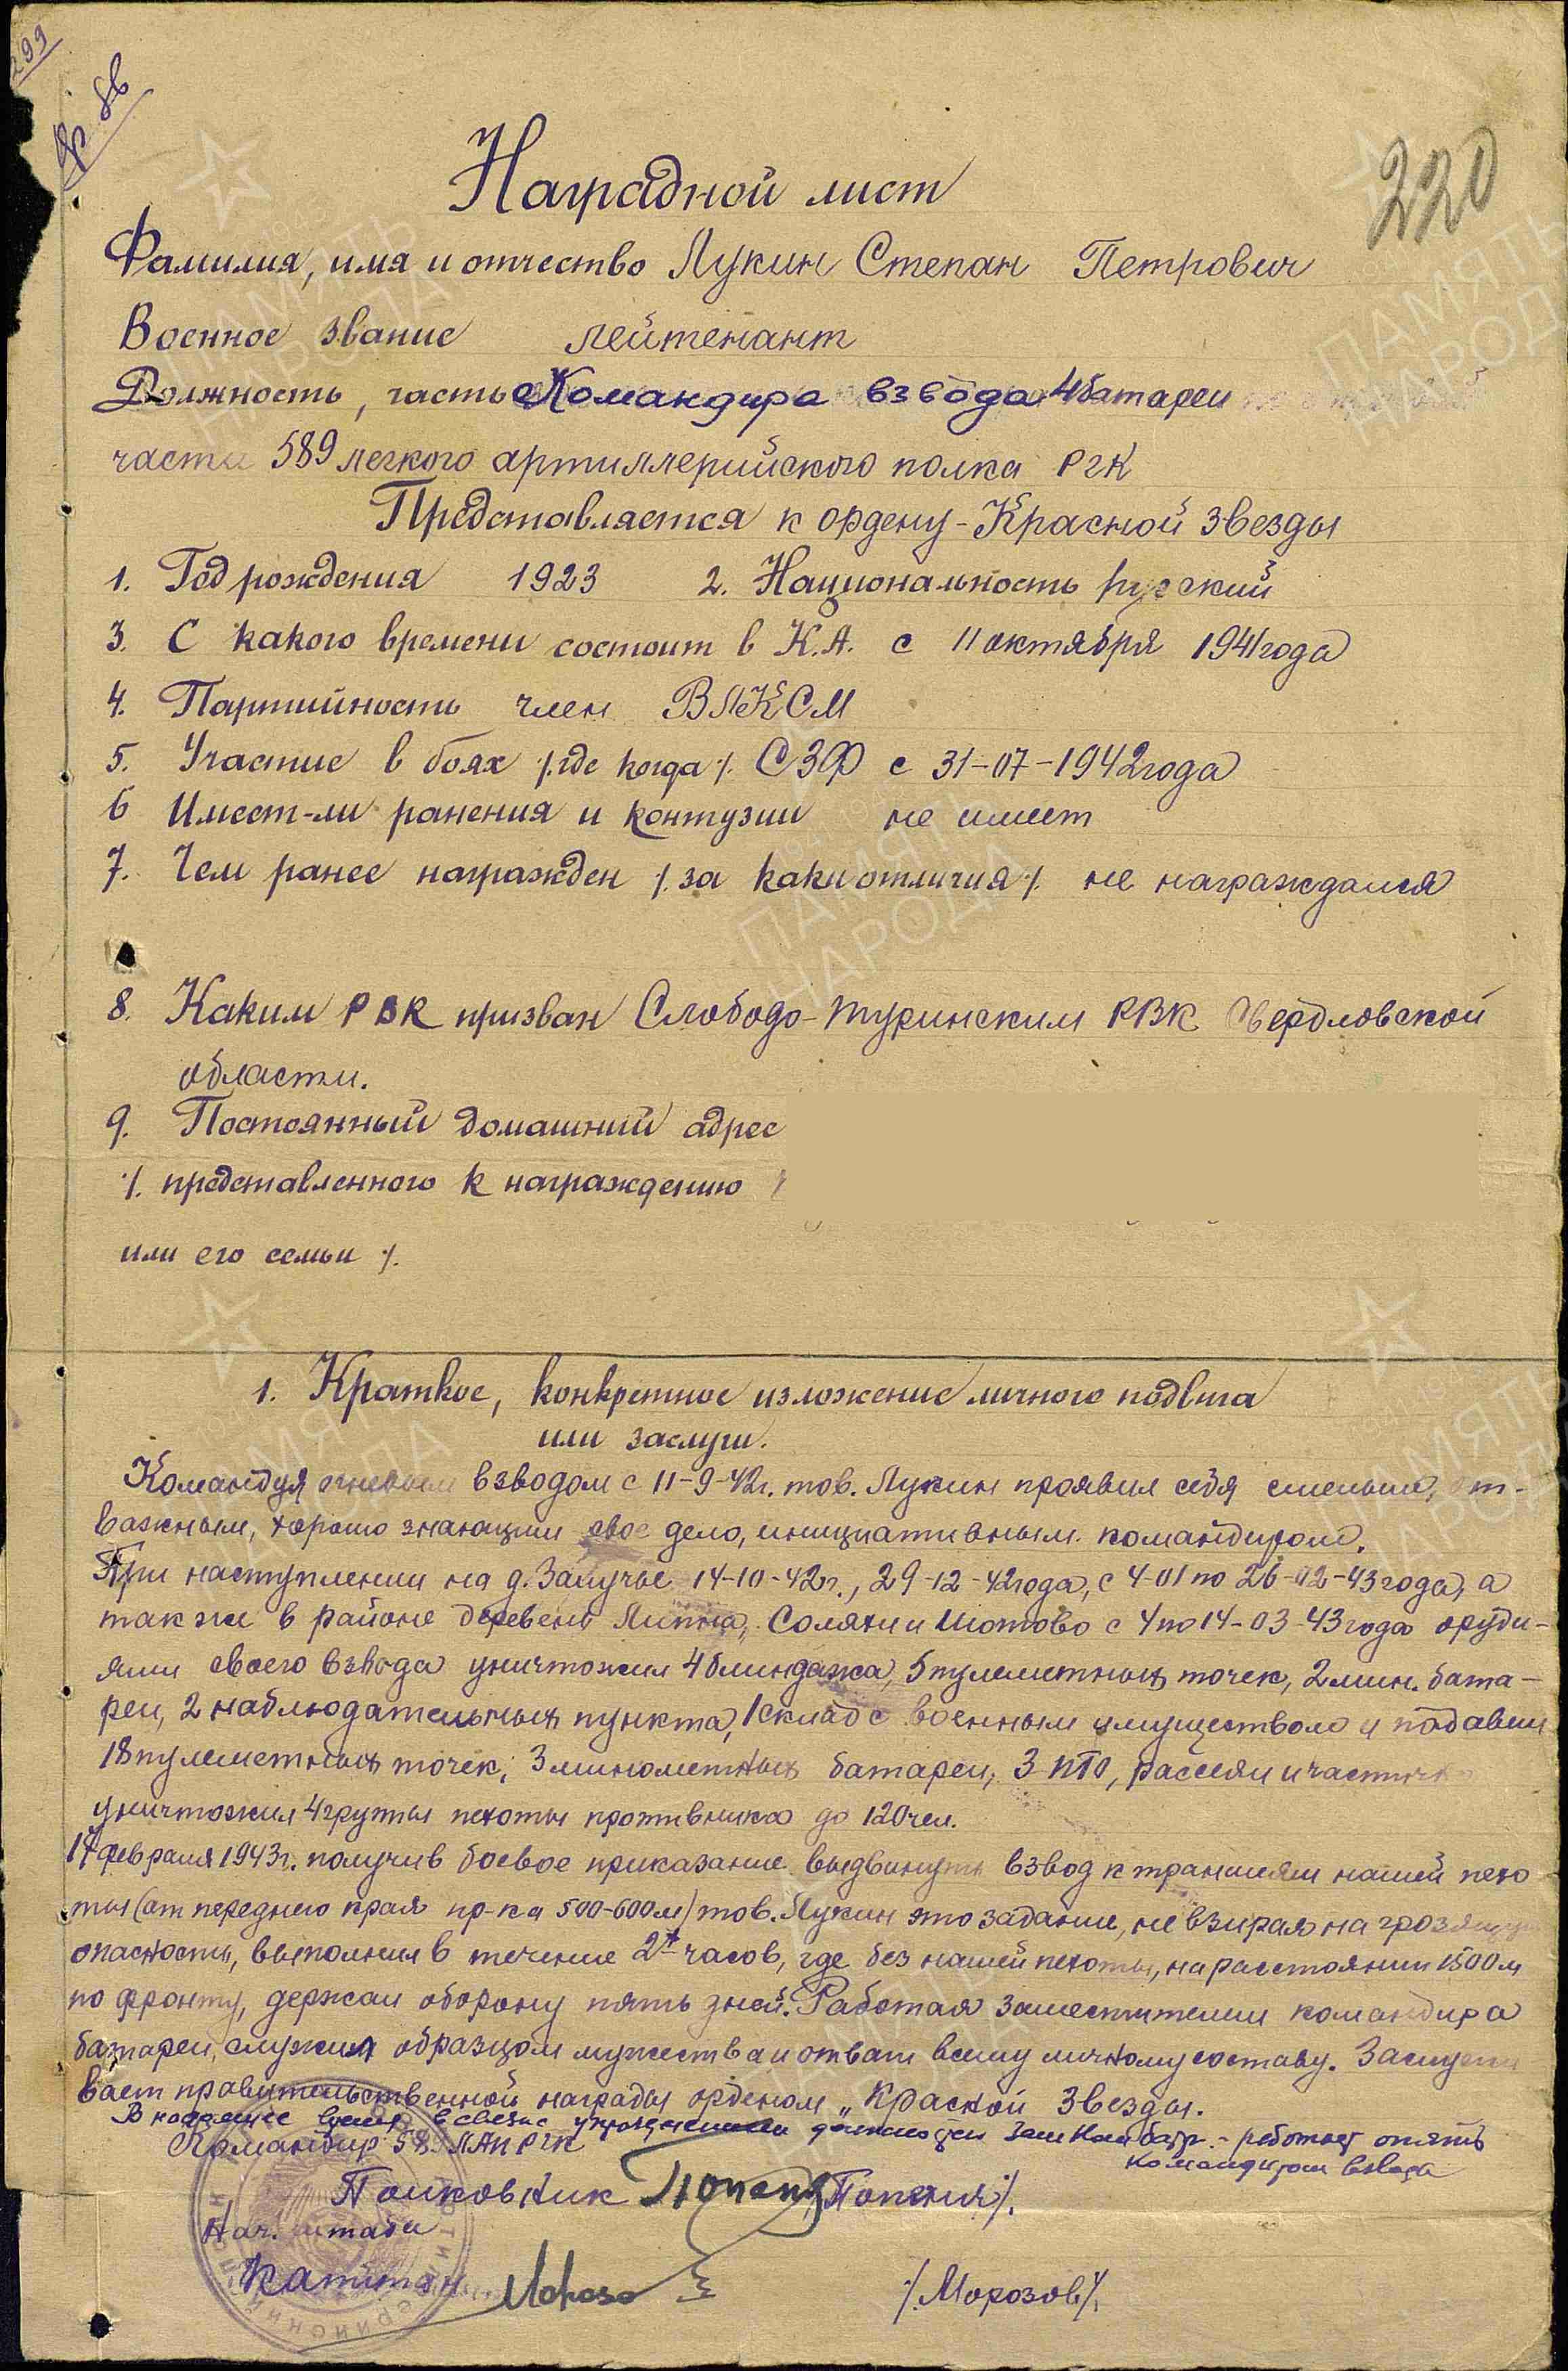 299
Наградной лист
220
Фамилия, имя и отчество Лукин Степан Петрович
Военное звание лейтенант
Должность, часть Командира взвода 4 батареи
части 589 легкого артиллерийского полка РГК
Представляется к ордену - Красной звезды
1. Год рождения 1923 2. Национальность русский
3. С какого времени состоит в К.А. с 11 октября 1941 года
4. Партийность член ВЛКСМ
5. Участие в боях /. где когда /. СЗФ с 31-07-1942 года
6 Имеет-ли ранения и контузии не имеет
7. Чем ранее награжден /. за каки отличия /. не награждался
8. Каким РВК призван Слободо-Туринским РВК Свердловской
области.
9. Постоянный домашний адрес
/. представленного к награждению
или его семьи /.
1. Краткое, конкретное изложение личного подвига
или заслуги.
Командуя огневым взводом с 11-9-42г. тов. Лукин проявил себя смелым, от-
важным, хорошо знающим свое дело, инициативным командиром.
При наступлении на д. Залучье 14-10-42г., 29-12-42 года, с 4-01 по 26-02-43 года, а
так же в районе деревень Липна, Соляни и Шотово с 4 по 14-03-43 года оруди-
ями своего взвода уничтожил 4 блиндажа, 5 пулеметных точек, 2 мин. бата-
реи, 2 наблюдательных пункта, 1 склад с военным имуществом и подавил
18 пулеметных точек, 3 минометных батареи, 3 ПТО, рассеял и частично
уничтожил 4 группы пехоты противника до 120 чел.
17 февраля 1943г. получив боевое приказание выдвинуть взвод к траншеям нашей пехо
ты (от переднего края пр-ка 500-600 м) тов. Лукин это задание, не взирая на грозящую
опасность, выполнил в течение 2х часов, где без нашей пехоты, на расстоянии 1500 м
по фронту, держал оборону пять дней. Работая заместителем командира
батареи, служил образцом мужества и отваги всему личному составу. Заслужи
вает правительственной награды орденом „Красной Звезды.
В настоящее время в связи с упразднением должности Зам Ком батр. - работает опять
командиром взвода
Командир 589 ЛАП РГК
Полковник Попеня /Попеня/.
Нач. штаба
Капитан Мороз /. Морозов /.
ПАМЯТЬ
НАРОДА